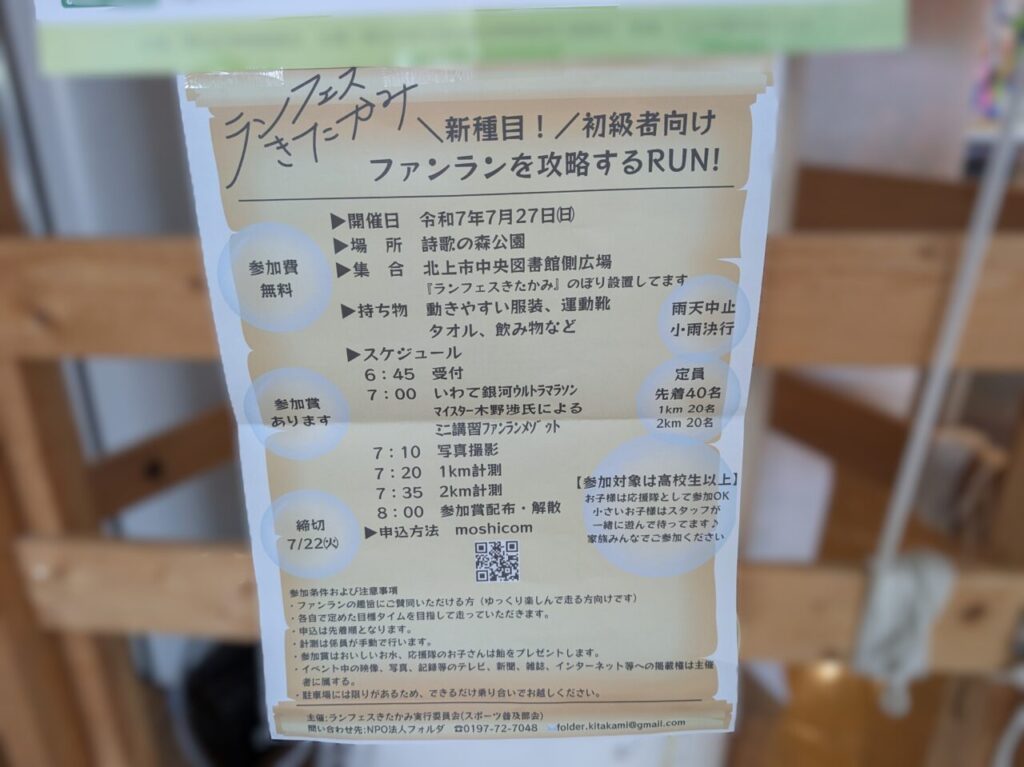 ランフェス
きたかみ
＼新種目！／初級者向け
ファンランを攻略するRUN!
▶開催日　令和7年7月27日㈰
▶場　所　詩歌の森公園
▶集　合　北上市中央図書館側広場
『ランフェスきたかみ』のぼり設置してます
▶持ち物　動きやすい服装、運動靴
タオル、飲み物など
▶スケジュール
6：45　受付
7：00　いわて銀河ウルトラマラソン
マイスター木野渉氏による
ミニ講習ファンランメゾット
7：10　写真撮影
7：20　1km計測
7：35　2km計測
8：00　参加賞配布・解散
▶申込方法　moshicom
参加費
無料
参加賞
あります
締切
7/22㈫
雨天中止
小雨決行
定員
先着40名
1km 20名
2km 20名
【参加対象は高校生以上】
お子様は応援隊として参加OK
小さいお子様はスタッフが
一緒に遊んで待ってます♪
家族みんなでご参加ください
参加条件および注意事項
・ファンランの趣旨にご賛同いただける方（ゆっくり楽しんで走る方向けです）
・各自で定めた目標タイムを目指して走っていただきます。
・申込は先着順となります。
・計測は係員が手動で行います。
・参加賞はおいしいお水、応援隊のお子さんは飴をプレゼントします。
・イベント中の映像、写真、記録等のテレビ、新聞、雑誌、インターネット等への掲載権は主催
者に属する。
・駐車場には限りがあるため、できるだけ乗り合いでお越しください。
主催:ランフェスきたかみ実行委員会(スポーツ普及部会)
問い合わせ先:NPO法人フォルダ　☎0197-72-7048　✉folder.kitakami@gmail.com